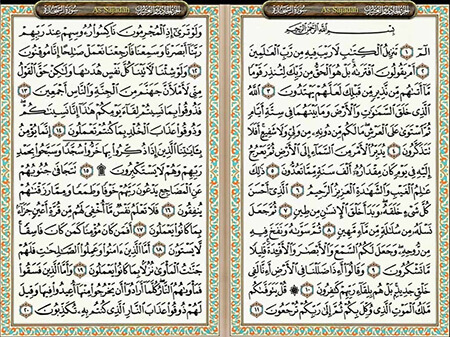 As-Sajadah
بِسْمِ ٱللَّهِ ٱلرَّحْمَٰنِ ٱلرَّحِيمِ
الٓمٓ ١ تَنزِيلُ ٱلْكِتَٰبِ لَا رَيْبَ فِيهِ مِن رَّبِّ ٱلْعَٰلَمِينَ
٢ أَمْ يَقُولُونَ ٱفْتَرَىٰهُ بَلْ هُوَ ٱلْحَقُّ مِن رَّبِّكَ لِتُنذِرَ قَوْمًا
مَّآ أَتَىٰهُم مِّن نَّذِيرٍ مِّن قَبْلِكَ لَعَلَّهُمْ يَهْتَدُونَ ٣ ٱللَّهُ
ٱلَّذِى خَلَقَ ٱلسَّمَٰوَٰتِ وَٱلْأَرْضَ وَمَا بَيْنَهُمَا فِى سِتَّةِ أَيَّامٍ
ثُمَّ ٱسْتَوَىٰ عَلَى ٱلْعَرْشِ مَا لَكُم مِّن دُونِهِۦ مِن وَلِىٍّ وَلَا شَفِيعٍ أَفَلَا
تَتَذَكَّرُونَ ٤ يُدَبِّرُ ٱلْأَمْرَ مِنَ ٱلسَّمَآءِ إِلَى ٱلْأَرْضِ ثُمَّ يَعْرُجُ
إِلَيْهِ فِى يَوْمٍ كَانَ مِقْدَارُهُۥٓ أَلْفَ سَنَةٍ مِّمَّا تَعُدُّونَ ٥ ذَٰلِكَ
عَٰلِمُ ٱلْغَيْبِ وَٱلشَّهَٰدَةِ ٱلْعَزِيزُ ٱلرَّحِيمُ ٦ ٱلَّذِىٓ أَحْسَنَ
كُلَّ شَىْءٍ خَلَقَهُۥ وَبَدَأَ خَلْقَ ٱلْإِنسَٰنِ مِن طِينٍ ٧ ثُمَّ جَعَلَ
نَسْلَهُۥ مِن سُلَٰلَةٍ مِّن مَّآءٍ مَّهِينٍ ٨ ثُمَّ سَوَّىٰهُ وَنَفَخَ فِيهِ
مِن رُّوحِهِۦ وَجَعَلَ لَكُمُ ٱلسَّمْعَ وَٱلْأَبْصَٰرَ وَٱلْأَفْـِٔدَةَ قَلِيلًا
مَّا تَشْكُرُونَ ٩ وَقَالُوٓا۟ أَءِذَا ضَلَلْنَا فِى ٱلْأَرْضِ أَءِنَّا لَفِى
خَلْقٍ جَدِيدٍۭ بَلْ هُم بِلِقَآءِ رَبِّهِمْ كَٰفِرُونَ ١٠ ۞ قُلْ يَتَوَفَّىٰكُم
مَّلَكُ ٱلْمَوْتِ ٱلَّذِى وُكِّلَ بِكُمْ ثُمَّ إِلَىٰ رَبِّكُمْ تُرْجَعُونَ ١١
As-Sajadah
وَلَوْ تَرَىٰٓ إِذِ ٱلْمُجْرِمُونَ نَاكِسُوا۟ رُءُوسِهِمْ عِندَ رَبِّهِمْ
رَبَّنَآ أَبْصَرْنَا وَسَمِعْنَا فَٱرْجِعْنَا نَعْمَلْ صَٰلِحًا إِنَّا مُوقِنُونَ
١٢ وَلَوْ شِئْنَا لَءَاتَيْنَا كُلَّ نَفْسٍ هُدَىٰهَا وَلَٰكِنْ حَقَّ ٱلْقَوْلُ
مِنِّى لَأَمْلَأَنَّ جَهَنَّمَ مِنَ ٱلْجِنَّةِ وَٱلنَّاسِ أَجْمَعِينَ ١٣
فَذُوقُوا۟ بِمَا نَسِيتُمْ لِقَآءَ يَوْمِكُمْ هَٰذَآ إِنَّا نَسِينَٰكُمْ
وَذُوقُوا۟ عَذَابَ ٱلْخُلْدِ بِمَا كُنتُمْ تَعْمَلُونَ ١٤ إِنَّمَا يُؤْمِنُ
بِـَٔايَٰتِنَا ٱلَّذِينَ إِذَا ذُكِّرُوا۟ بِهَا خَرُّوا۟ سُجَّدًا وَسَبَّحُوا۟ بِحَمْدِ
رَبِّهِمْ وَهُمْ لَا يَسْتَكْبِرُونَ ١٥ تَتَجَافَىٰ جُنُوبُهُمْ
عَنِ ٱلْمَضَاجِعِ يَدْعُونَ رَبَّهُمْ خَوْفًا وَطَمَعًا وَمِمَّا رَزَقْنَٰهُمْ
يُنفِقُونَ ١٦ فَلَا تَعْلَمُ نَفْسٌ مَّآ أُخْفِىَ لَهُم مِّن قُرَّةِ أَعْيُنٍ جَزَآءًۢ
بِمَا كَانُوا۟ يَعْمَلُونَ ١٧ أَفَمَن كَانَ مُؤْمِنًا كَمَن كَانَ فَاسِقًا
لَّا يَسْتَوُۥنَ ١٨ أَمَّا ٱلَّذِينَ ءَامَنُوا۟ وَعَمِلُوا۟ ٱلصَّٰلِحَٰتِ فَلَهُمْ
جَنَّٰتُ ٱلْمَأْوَىٰ نُزُلًۢا بِمَا كَانُوا۟ يَعْمَلُونَ ١٩ وَأَمَّا ٱلَّذِينَ فَسَقُوا۟
فَمَأْوَىٰهُمُ ٱلنَّارُ كُلَّمَآ أَرَادُوٓا۟ أَن يَخْرُجُوا۟ مِنْهَآ أُعِيدُوا۟ فِيهَا وَقِيلَ
لَهُمْ ذُوقُوا۟ عَذَابَ ٱلنَّارِ ٱلَّذِى كُنتُم بِهِۦ تُكَذِّبُونَ ٢٠